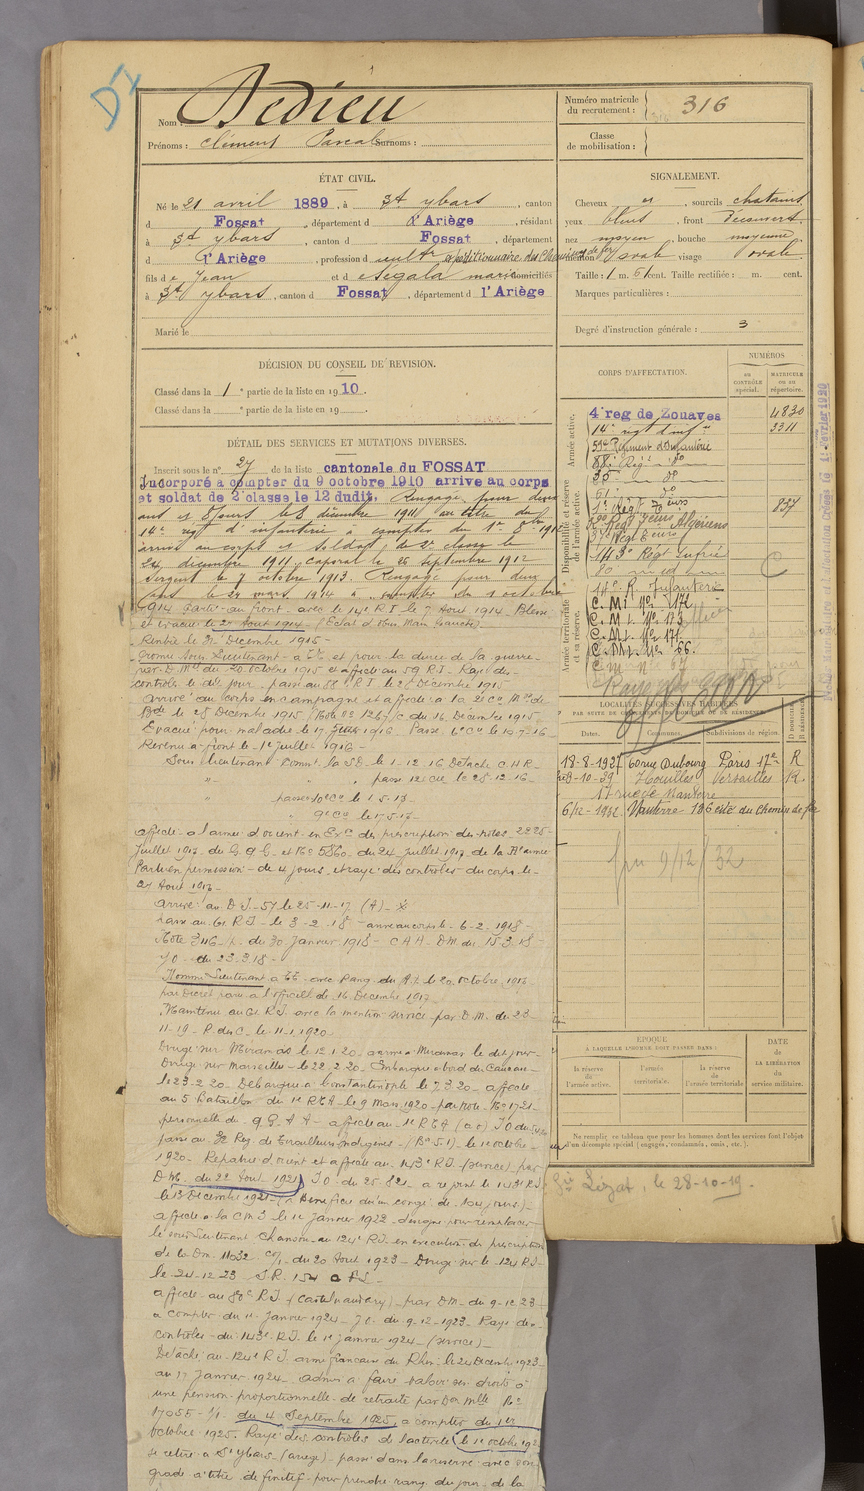 Dz
Nom : Dedieu
Prénoms : Clément Pascal Surnoms :
Numéro matricule du recrutement : 316
Classe de mobilisation :
ÉTAT CIVIL.
Né le 21 avril 1889, à St ybars, canton
d Fossat, département d l'Ariège, résidant
à St ybars, canton d Fossat, département
d l'Ariège, profession d cultr
fils de Jean et de Ségala marie domiciliés
à St ybars, canton d Fossat, département d l'Ariège
Marié le
SIGNALEMENT.
Cheveux et, sourcils chatains
yeux bleus, front découvert
nez moyen, bouche moyenne
menton ovale visage ovale
Taille : 1 m. cent. Taille rectifiée : m. cent.
Marques particulières :
Degré d'instruction générale : 3
DÉCISION DU CONSEIL DE REVISION.
Classé dans la 1e partie de la liste en 1910.
Classé dans la e partie de la liste en 19
DÉTAIL DES SERVICES ET MUTATIONS DIVERSES.
Inscrit sous le n° 27 de la liste cantonale du FOSSAT
Incorporé à compter du 9 octobre 1910 arrivé au corps
et soldat de 2e classe le 12 dudit. Rengagé pour deux
ans et 8 jours le 8 décembre 1911 au titre du
14e regt d'infanterie à compter du 1er 8bre 1912
arrivé au corps et soldat de 2e classe le
24 décembre 1911, caporal le 26 septembre 1912
Sergent le 7 octobre 1913. Rengagé pour deux
ans le 24 mars 1914 à compter du 1 octobre
1914 Parti au front avec le 14e R I le 7 Aout 1914 Blessé
et évacué le 27 Aout 1914 (Éclat d'obus Main Gauche)
Rentré le 31 Décembre 1915
Promu Sous Lieutenant à TT et pour la durée de la guerre
par D. Mlle du 20 octobre 1915 et affecté au 59 R.I. Rayé des
contrôles le dit jour. passé au 88e R.I le 27 Décembre 1915
arrivé au corps en campagne et affecté à la
Bde le 28 Décembre 1915 (Note No 1267/c du 16 Décembre 1915
Evacué pour maladie le 17 1916 Passé 6e Cie le 10-7-16
Revenu au front le 1er Juillet 1916
Sous Lieutenant Commt la SD le 1.12.16 Détaché C.H.R.
" " passé 12e Cie le 25-12-16
" passé 10e Cie le 1.5.17
" 9e Cie le 17.5.17
affecté à l'armée d'orient en Exon des prescriptions des notes 2225
Juillet 1917 du G.Q.G. et No 5860 du 24 juillet 1917 de la IIe armée
Parti en permission de 4 jours et rayé des contrôles du corps le
27 Aout 1917
arrivé au D.I. 57 le 25-11-17 (A)
passé au 61 R I le 3-2-18 arrivé au corps le 6-2-1918
Note 3116/p. du 30 Janvier 1918 C A A D.M. du 15.3.18
J O du 23.3.18
Nommé Lieutenant à TT avec Rang du 20 octobre 1917
par Décret paru à l'officiel du 16 Décembre 1917
Maintenu au 61 R.I. avec la mention service par D.M. du 23
11-19 R. du C. le 11.1.1920
Dirigé sur Miramas le 12.1.20 arrivé à Miramas le dit jour
Dirigé sur Marseille le 22.2.20 Embarqué à bord du Caucase
le 23-2-20 Débarqué à Constantinople le 7 3 20 affecté
au 5 Bataillon du 1e RTA le 9 Mars 1920 par note No 1721
personnelle du G.Q.A.A affecté au 1e RTA
passé au 38 Reg de Tirailleurs Indigènes le 1e octobre
1920. Rapatrié d'orient et affecté au 143e RI (service) par
D M. du 22 Aout 1921 J O du 25 8 21 a rejoint le 143e RI
le 13 Décembre 1921 (a bénéficié d'un congé de 104 jours)
affecté à la CM3 le 1er Janvier 1922 désigné pour remplacer
le sous Lieutenant Chanson au 124e RI en exécution des prescriptions
de la Dm 11032 du 20 Aout 1923 Dirigé sur le 124 RI
le 24-12-23 S.R. 154
affecté au 80e RI (Castelnaudary) par D.M. du 9-12-23
à compter du 11 Janvier 1924 J.O. du 9-12-1923 Rayé des
contrôles du 143e R.I. le 1e janvier 1924 (service)
Détaché au 124e R I armée française du Rhin le 24 Décembre 1923
au 17 Janvier 1924 admis à faire valoir ses droits à
une pension proportionnelle de retraite par Don Mlle No
17055 -1/1- du 4 Septembre 1925, à compter du 1er
octobre 1925. Rayé des contrôles de l'activité le 1e octobre 192
se retire à St Ybars (ariège) passé dans la réserve avec son
grade à titre définitif pour prendre rang du jour de la
CORPS D'AFFECTATION.
NUMÉROS
AU CONTRÔLE spécial.
MATRICULE ou au répertoire.
Armée active.
4e reg de Zouaves 4830
14e regt d'inf 3311
59e Régiment d'Infanterie
88e Regt do
35 do
61 do
1e Regt Tirs 237
Disponibilité et réserve de l'armée active.
143e Regt Infrie
80 d
14e R. Infanterie
Armée territoriale et sa réserve.
C. M. I. No 171
C. M. I. No 173
C. M. I. No 171
C. M. I. No 66
C M No 67
LOCALITÉS SUCCESSIVES HABITÉES
PAR SUITE DE CHANGEMENTS DE DOMICILE OU DE RÉSIDENCE.
Dates. Communes. Subdivisions de région. D DOMICILE R RÉSIDENCE
18-8-1927 60 rue Dubourg Paris 17e R
13-10-39 Houilles Versailles R.
17 rue de Nanterre
6/12-1932 Nanterre 136 cité du Chemin de fer
9/12/32
ÉPOQUE
À LAQUELLE L'HOMME DOIT PASSER DANS :
la réserve de l'armée active.
l'armée territoriale.
la réserve de l'armée territoriale
DATE de LA LIBÉRATION du service militaire.
Ne remplir ce tableau que pour les hommes dont les services font l'objet
d'un décompte spécial (engagés, condamnés, omis, etc.).
Gie Lézat, le 28-10-19.